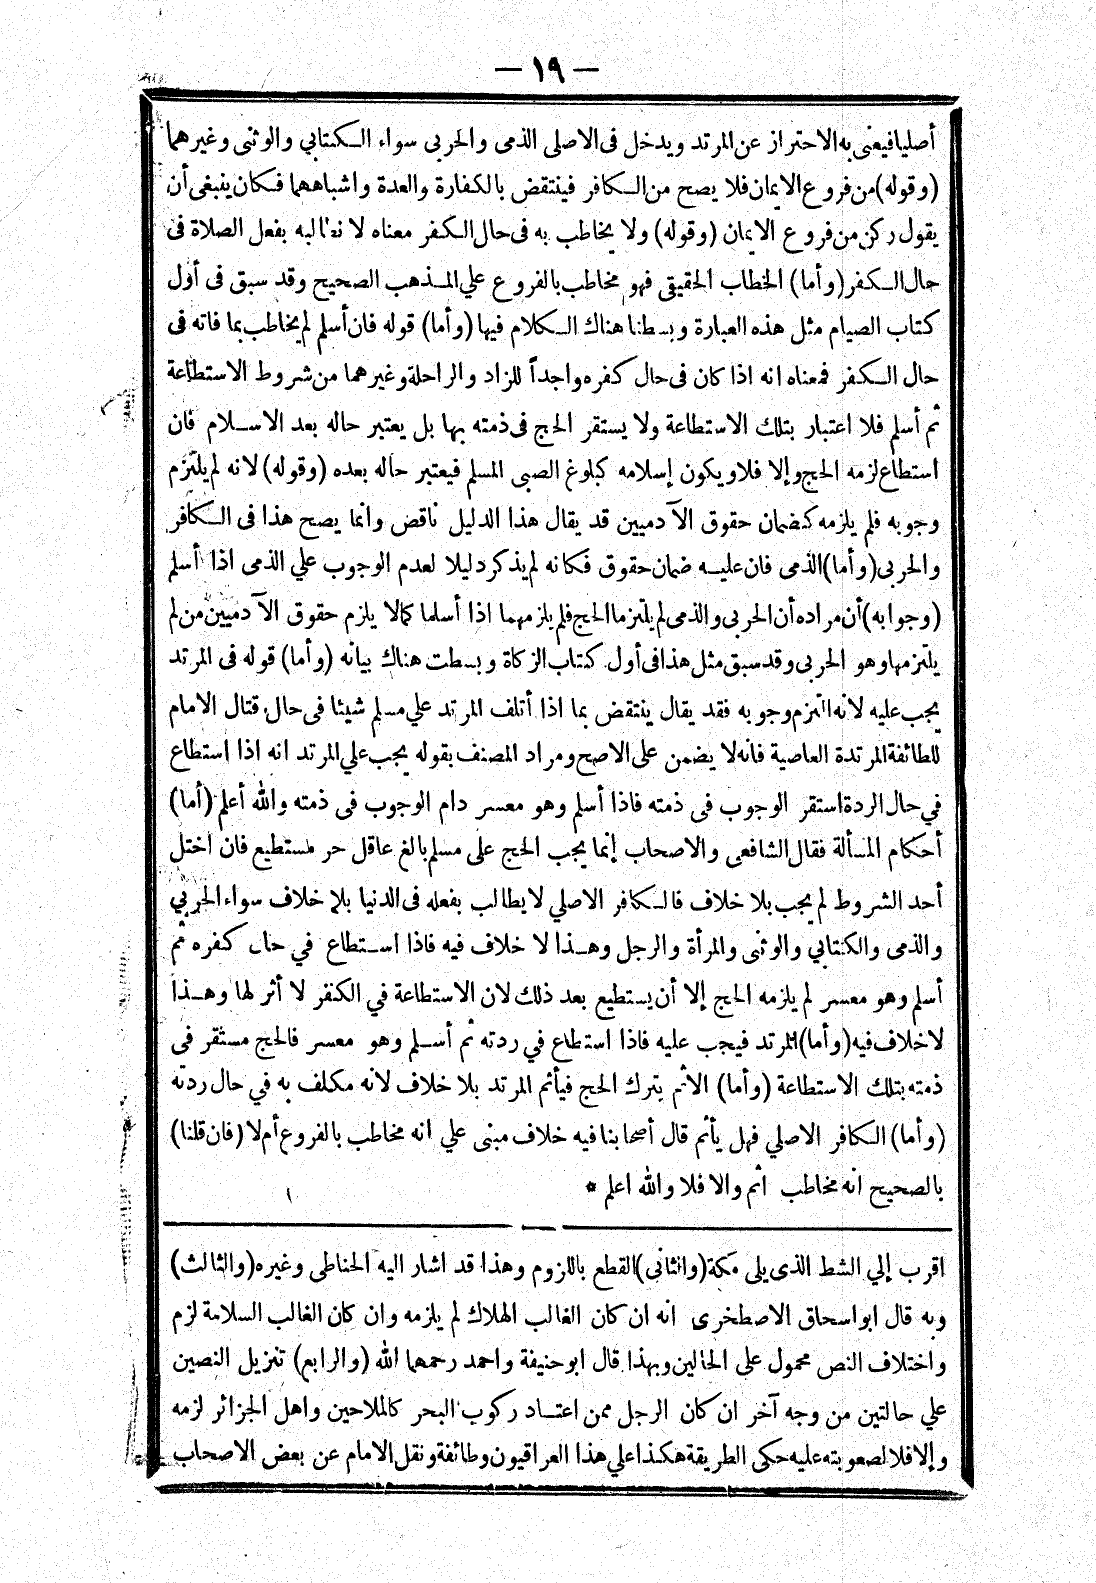 — ١٩ —
أصليا فيعنى به الاحتراز عن المرتد ويدخل فى الاصلى الذمى والحربى سواء الكتابي والوثنى وغيرهما
(وقوله) من فروع الايمان فلا يصح من الكافر فينتقض بالكفارة والعدة واشباههما فكان ينبغى أن
يقول ركن من فروع الايمان (وقوله) ولا يخاطب به فى حال الكفر معناه لا نطالبه بفعل الصلاة فى
حال الكفر (وأما) الخطاب الحقيقى فهو مخاطب بالفروع علي المذهب الصحيح وقد سبق فى أول
كتاب الصيام مثل هذه العبارة وبسطنا هناك الكلام فيها (وأما) قوله فان أسلم لم يخاطب بما فاته فى
حال الكفر فمعناه انه اذا كان فى حال كفره واجداً للزاد والراحلة وغيرهما من شروط الاستطاعة
ثم أسلم فلا اعتبار بتلك الاستطاعة ولا يستقر الحج فى ذمته بها بل يعتبر حاله بعد الاسلام فان
استطاع لزمه الحج وإلا فلا ويكون إسلامه كبلوغ الصبى المسلم فيعتبر حاله بعده (وقوله) لانه لم يلتزم
وجوبه فلم يلزمه كضمان حقوق الآدميين قد يقال هذا الدليل ناقض وانما يصح هذا فى الكافر
والحربى (وأما) الذمى فان عليه ضمان حقوق فكانه لم يذكر دليلا لعدم الوجوب علي الذمى اذا أسلم
(وجوابه) أن مراده أن الحربى والذمى لم يلتزما الحج فلم يلزمهما اذا أسلما كما لا يلزم حقوق الآدميين من لم
يلتزمها وهو الحربى وقد سبق مثل هذا فى أول كتاب الزكاة وبسطت هناك بيانه (وأما) قوله فى المرتد
يجب عليه لانه التزم وجوبه فقد يقال ينتقض بما اذا أتلف المرتد علي مسلم شيئا فى حال قتال الامام
للطائفة المرتدة العاصية فانه لا يضمن على الاصح ومراد المصنف بقوله يجب علي المرتد انه اذا استطاع
في حال الردة استقر الوجوب فى ذمته فاذا أسلم وهو معسر دام الوجوب فى ذمته والله أعلم (أما)
أحكام المسألة فقال الشافعى والاصحاب إنما يجب الحج على مسلم بالغ عاقل حر مستطيع فان اختل
أحد الشروط لم يجب بلا خلاف فالكافر الاصلي لا يطالب بفعله فى الدنيا بلا خلاف سواء الحربي
والذمى والكتابي والوثنى والمرأة والرجل وهذا لا خلاف فيه فاذا استطاع في حال كفره ثم
أسلم وهو معسر لم يلزمه الحج إلا أن يستطيع بعد ذلك لان الاستطاعة في الكفر لا أثر لها وهذا
لا خلاف فيه (وأما) المرتد فيجب عليه فاذا استطاع في ردته ثم أسلم وهو معسر فالحج مستقر فى
ذمته بتلك الاستطاعة (وأما) الاثم بترك الحج فيأثم المرتد بلا خلاف لانه مكلف به في حال ردته
(وأما) الكافر الاصلي فهل يأثم قال أصحابنا فيه خلاف مبنى علي انه مخاطب بالفروع أم لا (فان قلنا)
بالصحيح انه مخاطب اثم والا فلا والله اعلم *
اقرب إلي الشط الذى يلى مكة (والثانى) القطع باللزوم وهذا قد اشار اليه الحناطى وغيره (والثالث)
وبه قال ابو اسحاق الاصطخرى انه ان كان الغالب الهلاك لم يلزمه وان كان الغالب السلامة لزم
واختلاف النص محمول على الحالين وبهذا قال ابو حنيفة واحمد رحمهما الله (والرابع) تنزيل النصين
علي حالتين من وجه آخر ان كان الرجل ممن اعتاد ركوب البحر كالملاحين واهل الجزائر لزمه
وإلا فلا لصعوبته عليه حكى الطريقة هكذا علي هذا العراقيون وطائفة ونقل الامام عن بعض الاصحاب